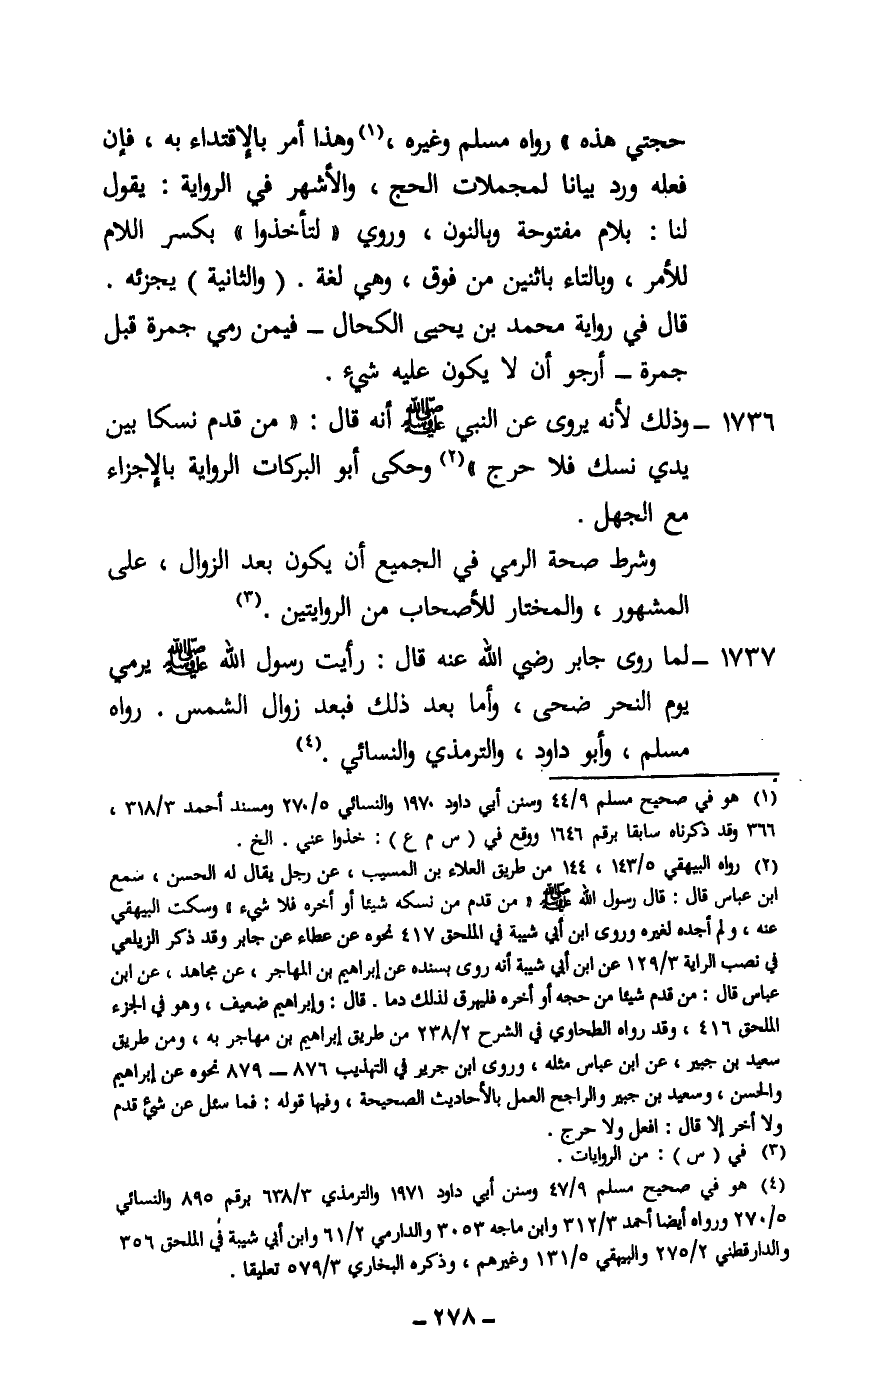 حجتي هذه » رواه مسلم وغيره ،(١) وهذا أمر بالإقتداء به ، فإن
فعله ورد بيانا لمجملات الحج ، والأشهر في الرواية : يقول
لنا : بلام مفتوحة وبالنون ، وروي « لتأخذوا » بكسر اللام
للأمر ، وبالتاء باثنين من فوق ، وهي لغة . ( والثانية ) يجزئه .
قال في رواية محمد بن يحيى الكحال – فيمن رمي جمرة قبل
جمرة – أرجو أن لا يكون عليه شيء .
١٧٣٦ – وذلك لأنه يروى عن النبي ﷺ أنه قال : « من قدم نسكا بين
يدي نسك فلا حرج »(٢) وحكى أبو البركات الرواية بالإجزاء
مع الجهل .
وشرط صحة الرمي في الجميع أن يكون بعد الزوال ، على
المشهور ، والمختار للأصحاب من الروايتين .(٣)
١٧٣٧ – لما روى جابر رضي الله عنه قال : رأيت رسول الله ﷺ يرمي
يوم النحر ضحى ، وأما بعد ذلك فبعد زوال الشمس . رواه
مسلم ، وأبو داود ، والترمذي والنسائي .(٤)
(١) هو في صحيح مسلم ٤٤/٩ وسنن أبي داود ١٩٧٠ والنسائي ٢٧٠/٥ ومسند أحمد ٣١٨/٣ ،
٣٦٦ وقد ذكرناه سابقا برقم ١٦٤٦ ووقع في ( س م ع ) : خذوا عني . الخ .
(٢) رواه البيهقي ١٤٣/٥ ، ١٤٤ من طريق العلاء بن المسيب ، عن رجل يقال له الحسن ، سمع
ابن عباس قال : قال رسول الله ﷺ « من قدم من نسكه شيئا أو أخره فلا شيء » وسكت البيهقي
عنه ، ولم أجده لغيره وروى ابن أبي شيبة في الملحق ٤١٧ نحوه عن عطاء عن جابر وقد ذكر الزيلعي
في نصب الراية ١٢٩/٣ عن ابن أبي شيبة أنه روى بسنده عن إبراهيم بن المهاجر ، عن مجاهد ، عن ابن
عباس قال : من قدم شيئا من حجه أو أخره فليهرق لذلك دما . قال : وإبراهيم ضعيف ، وهو في الجزء
الملحق ٤١٦ ، وقد رواه الطحاوي في الشرح ٢٣٨/٢ من طريق إبراهيم بن مهاجر به ، ومن طريق
سعيد بن جبير ، عن ابن عباس مثله ، وروى ابن جرير في التهذيب ٨٧٦ – ٨٧٩ نحوه عن إبراهيم
والحسن ، وسعيد بن جبير والراجح العمل بالأحاديث الصحيحة ، وفيها قوله : فما سئل عن شيء قدم
ولا أخر إلا قال : افعل ولا حرج .
(٣) في ( س ) : من الروايات .
(٤) هو في صحيح مسلم ٤٧/٩ وسنن أبي داود ١٩٧١ والترمذي ٦٣٨/٣ برقم ٨٩٥ والنسائي
٢٧٠/٥ ورواه أيضا أحمد ٣١٢/٣ وابن ماجه ٣٠٥٣ والدارمي ٦١/٢ وابن أبي شيبة في الملحق ٣٥٦
والدارقطني ٢٧٥/٢ والبيهقي ١٣١/٥ وغيرهم ، وذكره البخاري ٥٧٩/٣ تعليقا .
– ٢٧٨ –